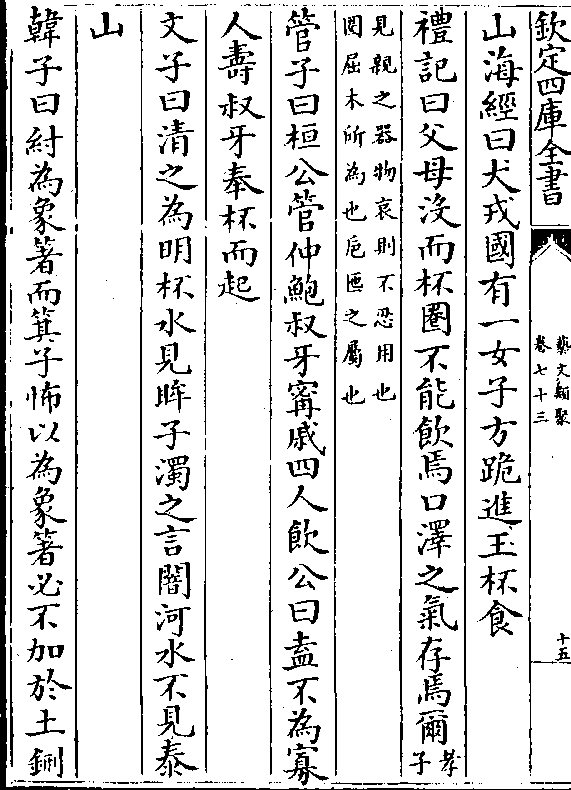 欽定四庫全書
藝文類聚
卷七十三
十五
山海經曰犬戎國有一女子方跪進玉杯食
禮記曰父母沒而杯圏不能飲焉口澤之氣存焉爾孝子
見親之器物哀則不忍用也
圏屈木所為也巵匜之屬也
管子曰桓公管仲鮑叔牙甯戚四人飲公曰盍不為寡
人壽叔牙奉杯而起
文子曰清之為明杯水見眸子濁之言闇河水不見泰
山
韓子曰紂為象箸而箕子怖以為象箸必不加於土鉶